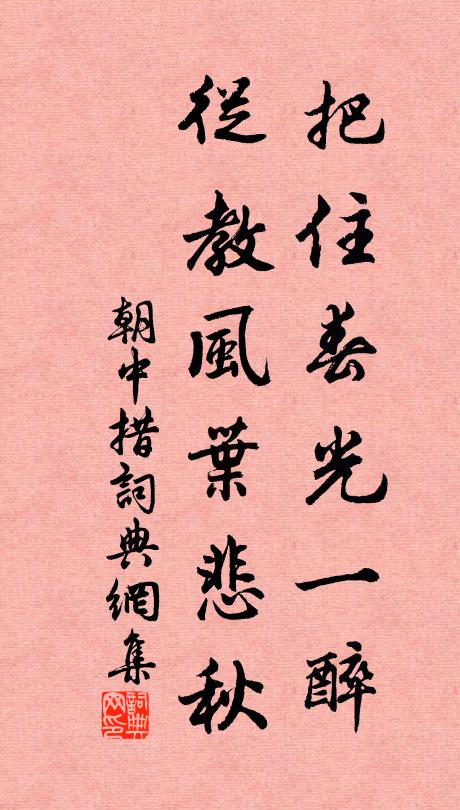 把住春光一醉
從教風葉悲秋
朝中措詞典網集
詞典网印